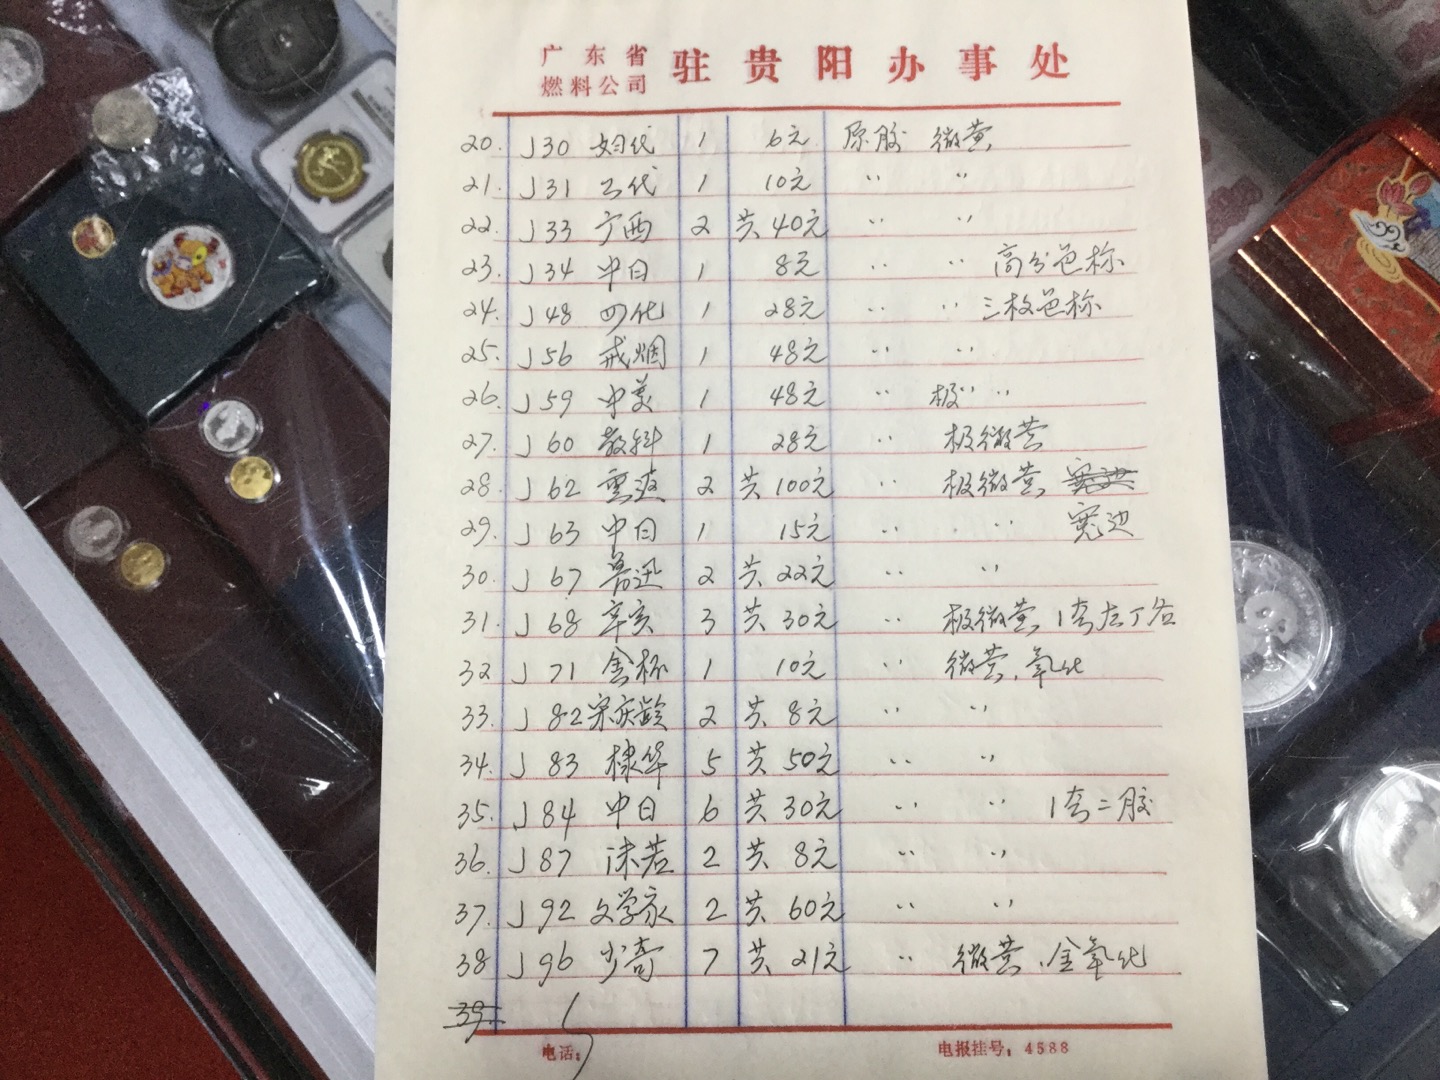 广东省
燃料公司 驻贵阳办事处
20. J30 妇代 1 6元 原胶 微黄
21. J31 工代 1 10元 〃 〃
22. J33 宁西 2 共40元 〃 〃
23. J34 中日 1 8元 〃 〃 高分色标
24. J48 四化 1 28元 〃 〃 三枚色标
25. J56 戒烟 1 48元 〃 〃
26. J59 中美 1 48元 〃 极〃 〃
27. J60 教科 1 28元 〃 极微黄
28. J62 2 共100元 〃 极微黄 宽边
29. J63 中日 1 15元 〃 〃 〃 宽边
30. J67 鲁迅 2 共22元 〃 〃
31. J68 辛亥 3 共30元 〃 极微黄, 1套左厂名
32 J71 金杯 1 10元 〃 微黄, 氧化
33. J82 宋庆龄 2 共8元 〃 〃
34. J83 棣华 5 共50元 〃 〃
35. J84 中日 6 共30元 〃 〃 1套二胶
36. J87 沫若 2 共8元 〃 〃
37. J92 文学家 2 共60元 〃 〃
38 J96 少奇 7 共21元 〃 微黄, 金氧化
39.
电话: 电报挂号: 4588